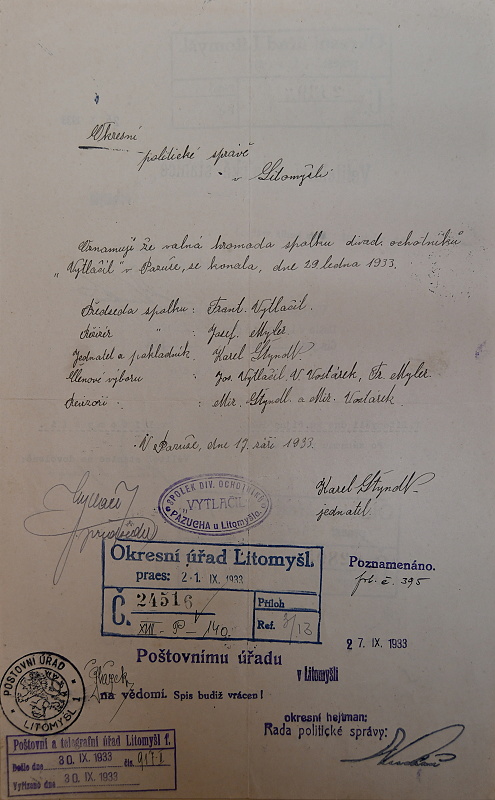 Okresní
politické správě
v Litomyšli
Oznamuji že valná hromada spolku divad. ochotníků
„Vytlačil" v Pazuše, se konala, dne 29. ledna 1933.
Předseda spolku : Frant. Vytlačil.
Režizér " : Josef. Myler.
Jednatel a pokladník. Karel Štyndl.
Členové výboru : Jos. Vytlačil. V. Vostárek, Fr. Myler.
Revizoři : Mir. Štyndl. a Mir. Vostárek.
V Pazuše, dne 17. září 1933.
Karel Štyndl
jednatel
předseda
SPOLEK DIV. OCHOTNÍKŮ
„VYTLAČIL"
PAZUCHA u Litomyšle.
Okresní úřad Litomyšl.
praes: 2-1. IX. 1933
Č. 24516
XIII - P - 140.
Příloh
Ref. 3/13
Poznamenáno.
fol. č. 395
27. IX. 1933
Poštovnímu úřadu
v Litomyšli
na vědomí. Spis budiž vrácen!
POŠTOVNÍ ÚŘAD
LITOMYŠL 1
okresní hejtman:
Rada politické správy:
Poštovní a telegrafní úřad Litomyšl 1.
Došlo dne 30. IX. 1933 čís. 917-1
Vyřízeno dne 30. IX. 1933